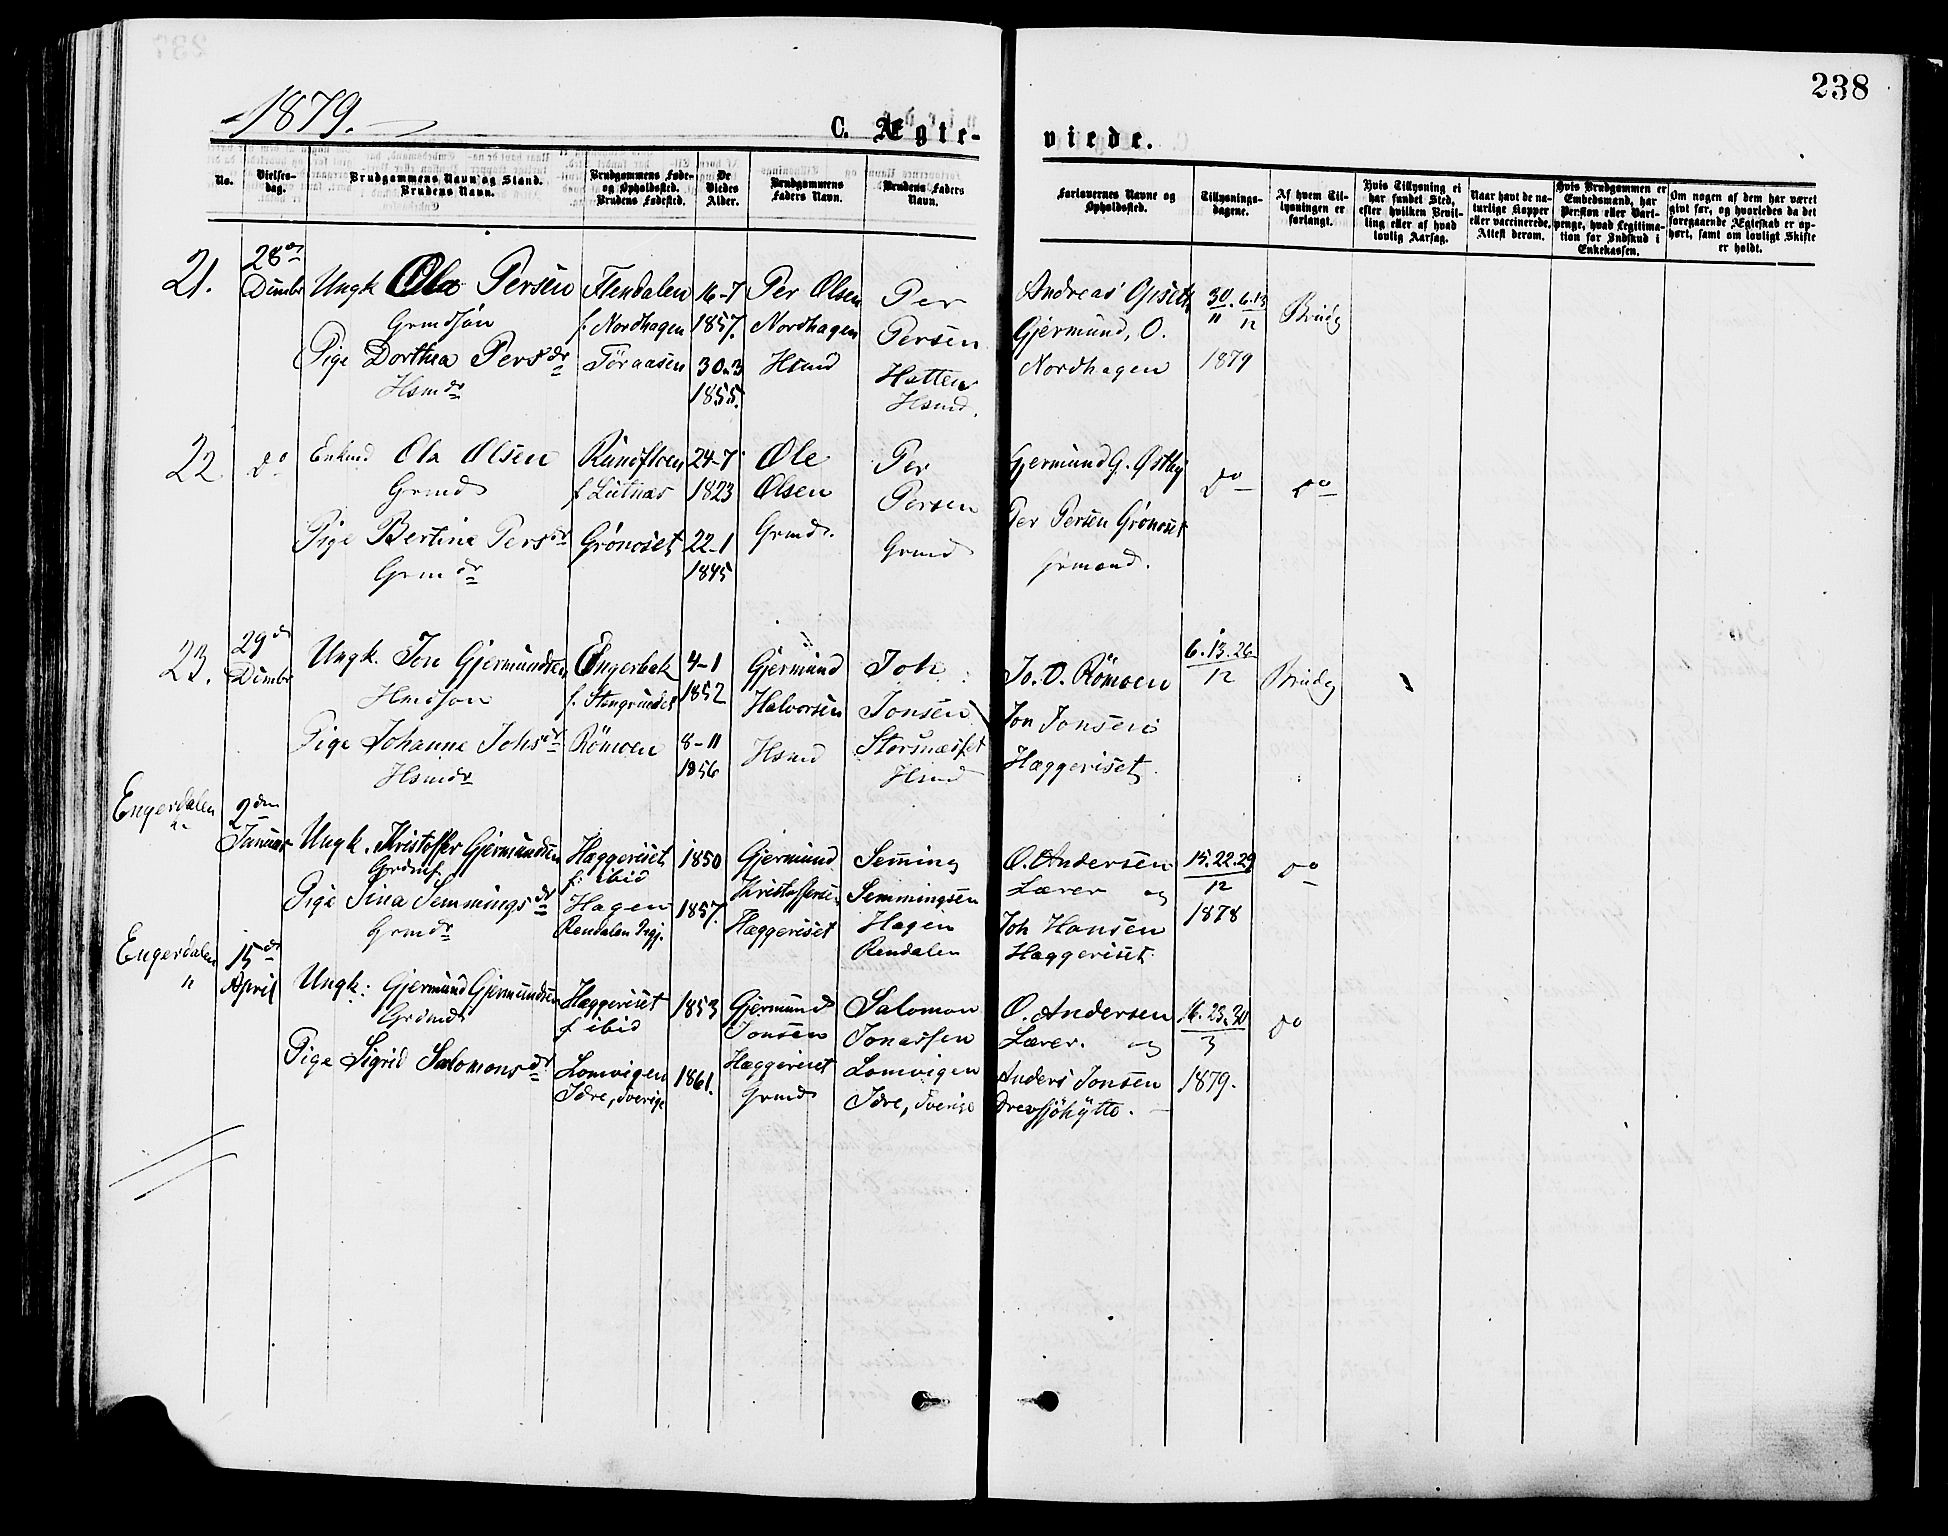 238
1879.
C. Ægte-
viede.
No.
Vielses-
dag.
Brudgommens Navn og Stand.
Brudens Navn.
Brudgommens Føde-
og Opholdssted.
Brudens Fødested.
De
Viedes
Alder.
Brudgommens
Faders Navn.
Brudens Faders
Navn.
Forlovernes Navne og
Opholdssted.
Tillysnings-
dagene.
Af hvem Til-
lysningen er
forlangt.
Hvis Tillysning ei
har fundet Sted,
efter hvilken Bevil-
ling eller af hvad
lovlig Aarsag.
Naar havt de na-
turlige Kopper
eller vaccinerede.
Attest derom.
Hvis Brudgommen er
Embedsmand, har
Pension eller Vart-
penge, hvad Legitima-
tion for Indskud i
Enkekassen.
Om nogen af dem har været
givt før, og hvorledes da det
foregaaende Ægteskab er op-
hørt, samt om lovligt Skifte
er holdt.
21.
28de
Dcmbr
Ungk Ola Persen
Grmdsøn
Pige Dorthea Persdr
Hsmdr
Flendalen
f. Nordhagen
Töraasen
16-7
1857.
30-3
1855.
Per Olsen
Nordhagen
Hsmd
Per
Persen
Hatten
Hsmd.
Andreas Gjseth
Gjermund, O.
Nordhagen
30/11. 6.13/12
1879
Brudg
22
Do
Enkmd Ola Olsen
Grmd
Pige Bertine Persdr
Grmdr
Rundfloen
f Lutnæs
Grönoset
24-7
1823
22-1
1845
Ole
Olsen
Grmd.
Per
Persen
Grmd
Gjermund G. Østby
Per Persen Grönoset
Grmænd.
Do
Do
23.
29de
Dcmbr
Ungk. Jon Gjermundsen
Hmdsøn
Pige Johanne Johsdr
Hsmdr
Engerbak
f. Stengrundet
Römoen
4-1
1852
8-11
1856
Gjermund
Halvorsen
Hsmd
Joh
Jonsen
Storsnæsset
Hsmd
Jo. O. Römoen
Jon Jonsen
Hæggeriset
6.13.26
12
Brudg
Engerdalen
"
2den
Januar
Ungk. Kristoffer Gjermundsen
Grdmf.
Pige Sina Semmingsdr
Grmdr
Hæggeriset
f. ibid
Hagen
Rendalen Prgj.
1850
1857.
Gjermund
Kristoffersen
Hæggeriset
Semming
Semmingsen
Hagen
Rendalen
O. Andersen
Lærer og
Joh Hansen
Hæggeriset
15.22.29
12
1878
Do
Engerdalen
"
15de
April
Ungk: Gjermund Gjermundsen
Grdmd
Pige Sigrid Salomonsdr
Hæggeriset
f ibid
Lomvigen
Idre, Sverige
1853
1861.
Gjermund
Jonsen
Hæggeriset
Grmd
Salomon
Jonassen
Lomvigen
Idre, Sverige
O. Andersen
Lærer. og
Anders Jonsen
Drevsjöhytte.
16.23.30
3
1879.
Do